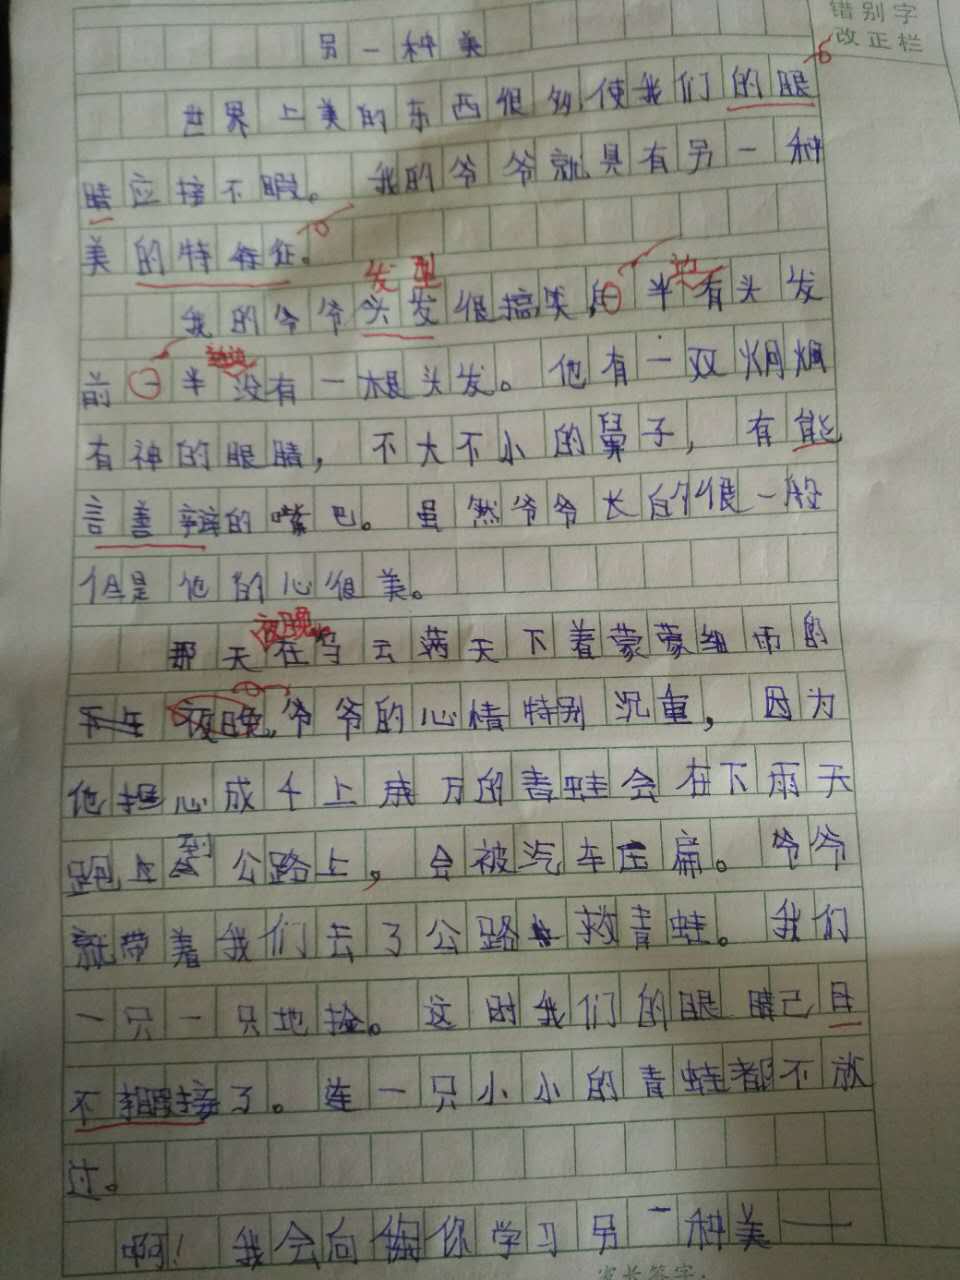 错别字
改正栏
另一种美
世界上美的东西很多使我们的眼
睛应接不暇。我的爷爷就具有另一种
美的特征。
发型
我的爷爷头发很搞笑,一半有头发
前一半没有一根头发。他有一双炯炯
有神的眼睛,不大不小的鼻子,有能
言善辩的嘴巴。虽然爷爷长的很一般
但是他的心很美。
夜晚
那天在乌云满天下着蒙蒙细雨的
夜晚,爷爷的心情特别沉重,因为
他担心成千上万的青蛙会在下雨天
跑到公路上,会被汽车压扁。爷爷
就带着我们去了公路救青蛙。我们
一只一只地捡。这时我们的眼睛已目
不暇接了。连一只小小的青蛙都不放
过。
啊!我会向你学习另一种美——
家长签字: